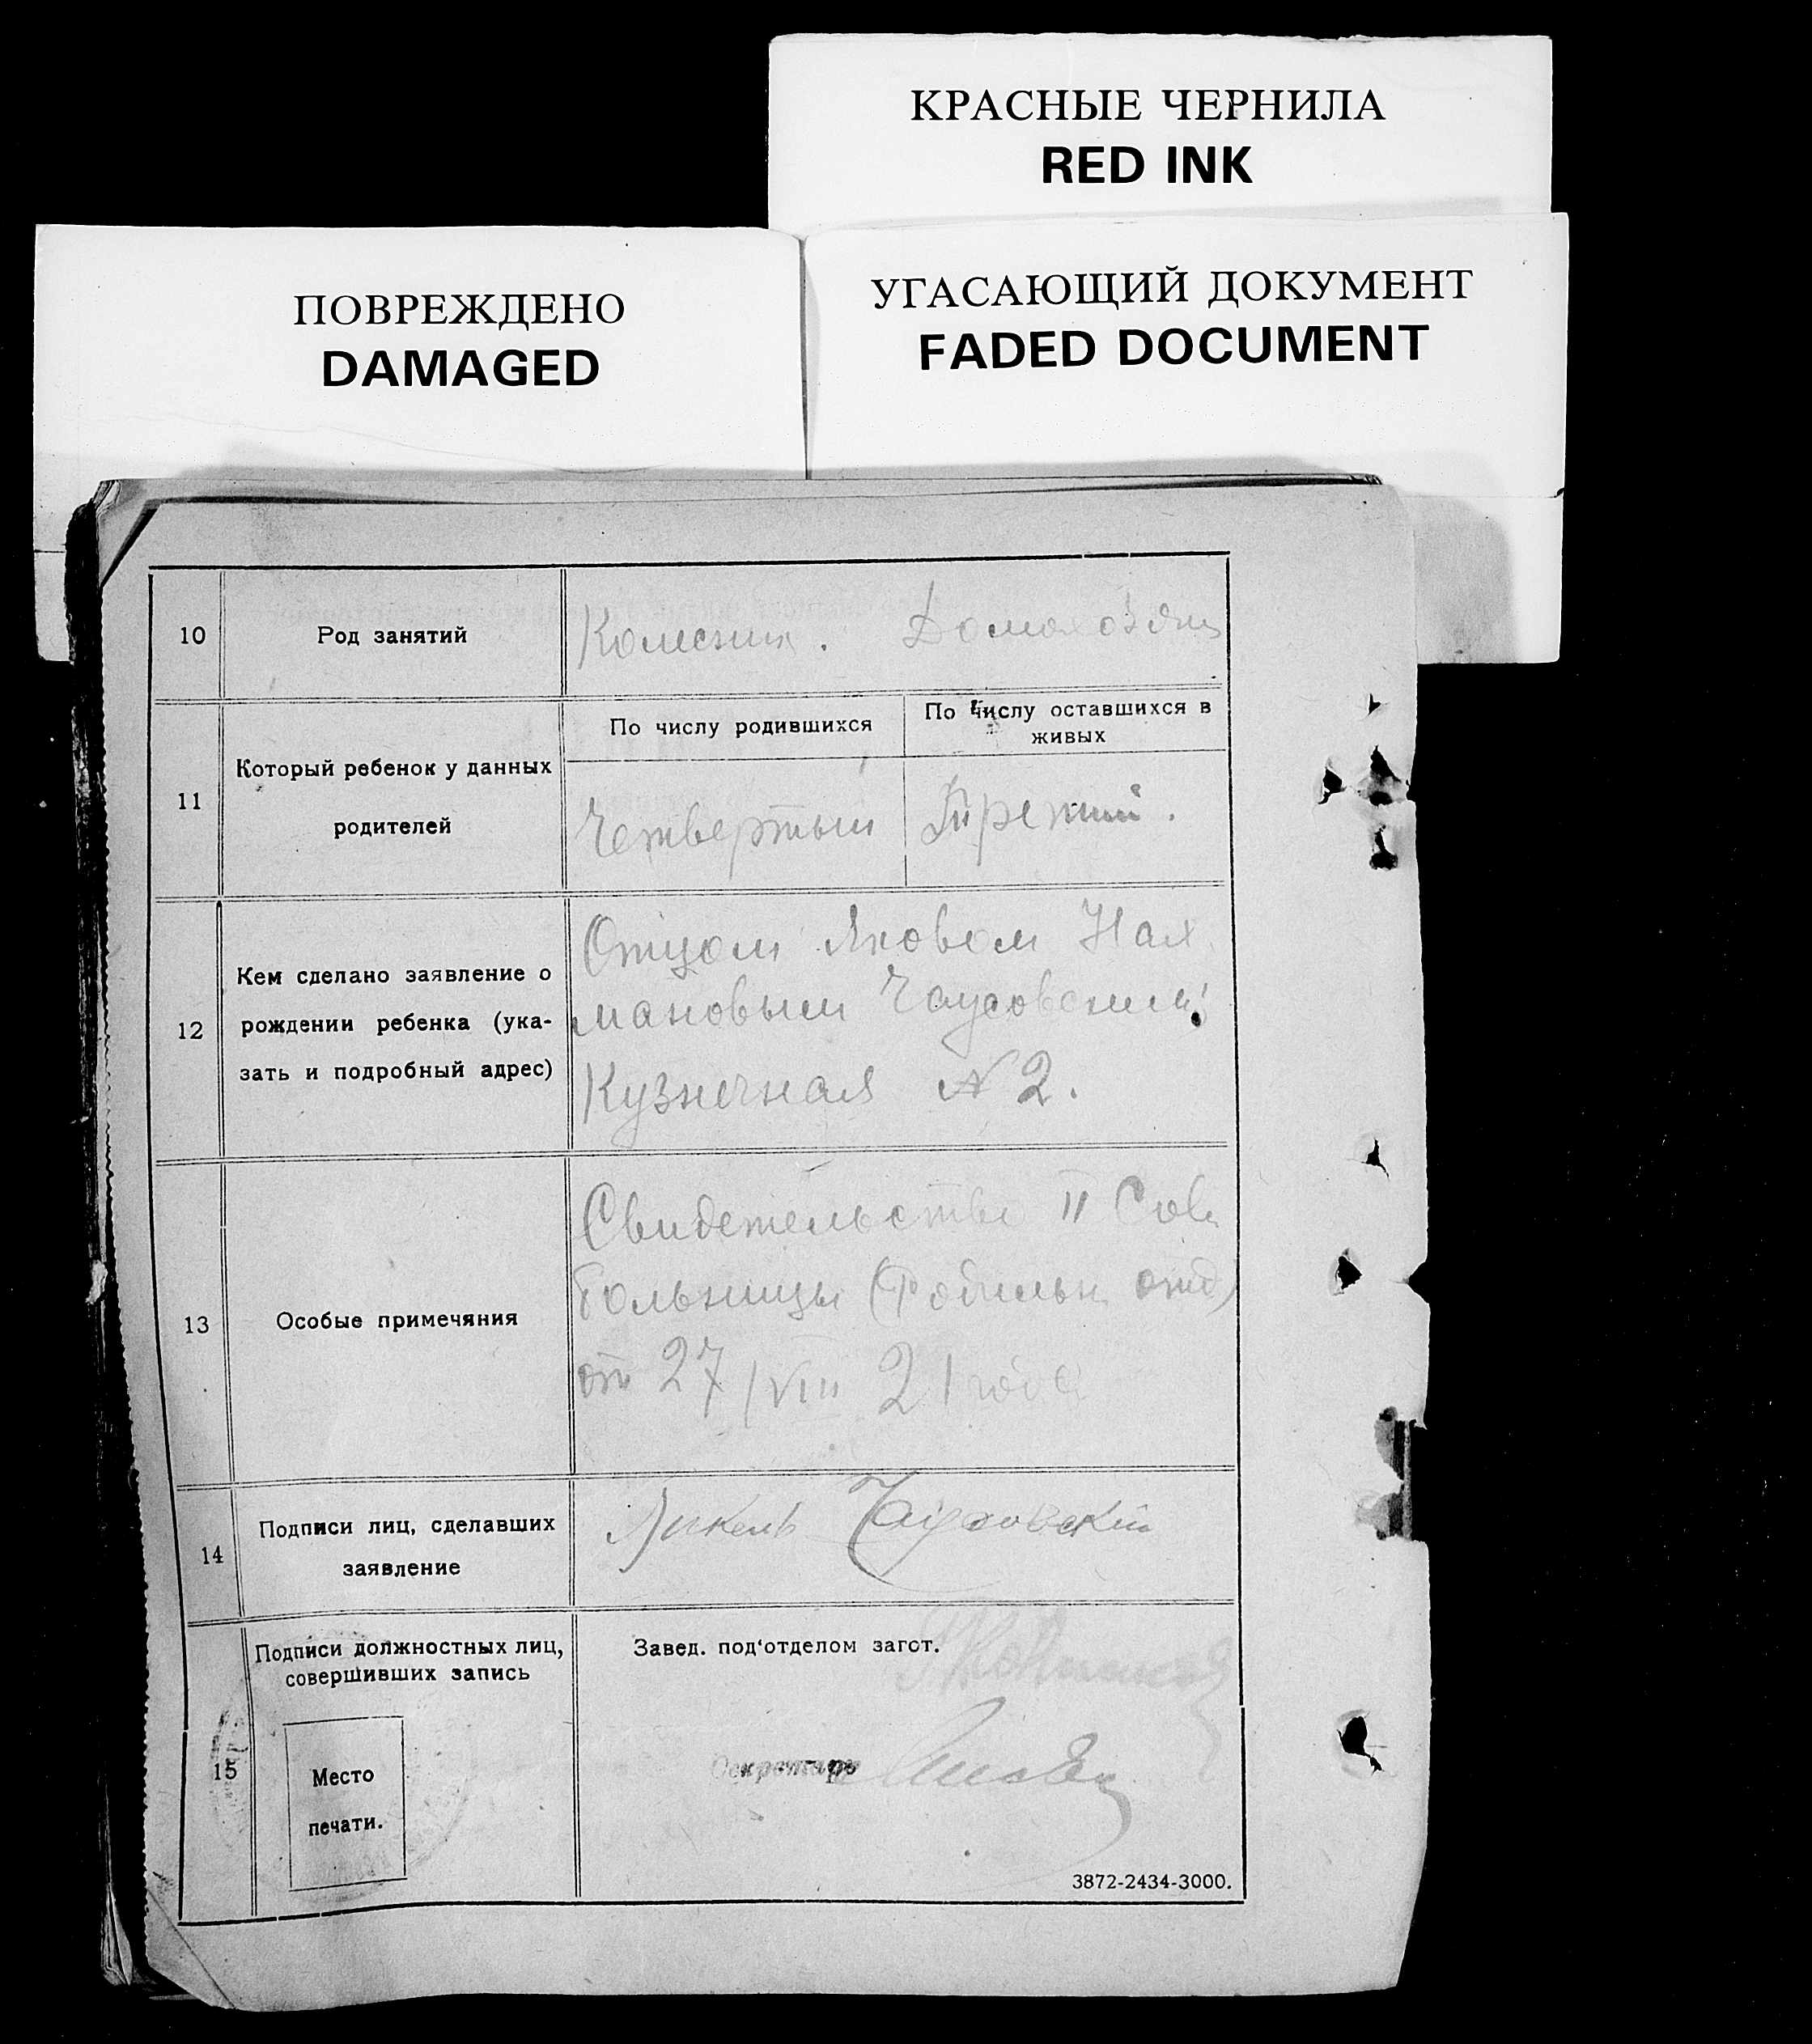 КРАСНЫЕ ЧЕРНИЛА
RED INK
ПОВРЕЖДЕНО
DAMAGED
УГАСАЮЩИЙ ДОКУМЕНТ
FADED DOCUMENT
10 Род занятий Колесник. Домохозяй
11 Который ребенок у данных
родителей
По числу родившихся
По числу оставшихся в
живых
Четвертый Третий.
12 Кем сделано заявление о
рождении ребенка (ука-
зать и подробный адрес)
Отцом Яковом Нах
мановым Чаусовским
Кузнечная N 2.
13 Особые примечяния
Свидетельство II Сов
больницы (Родильн отд)
от 27/VIII 21 года
14 Подписи лиц, сделавших
заявление
Чаусовский
15 Подписи должностных лиц,
совершивших запись
Место
печати.
Завед. под‘отделом загст.
Секретарь
3872-2434-3000.